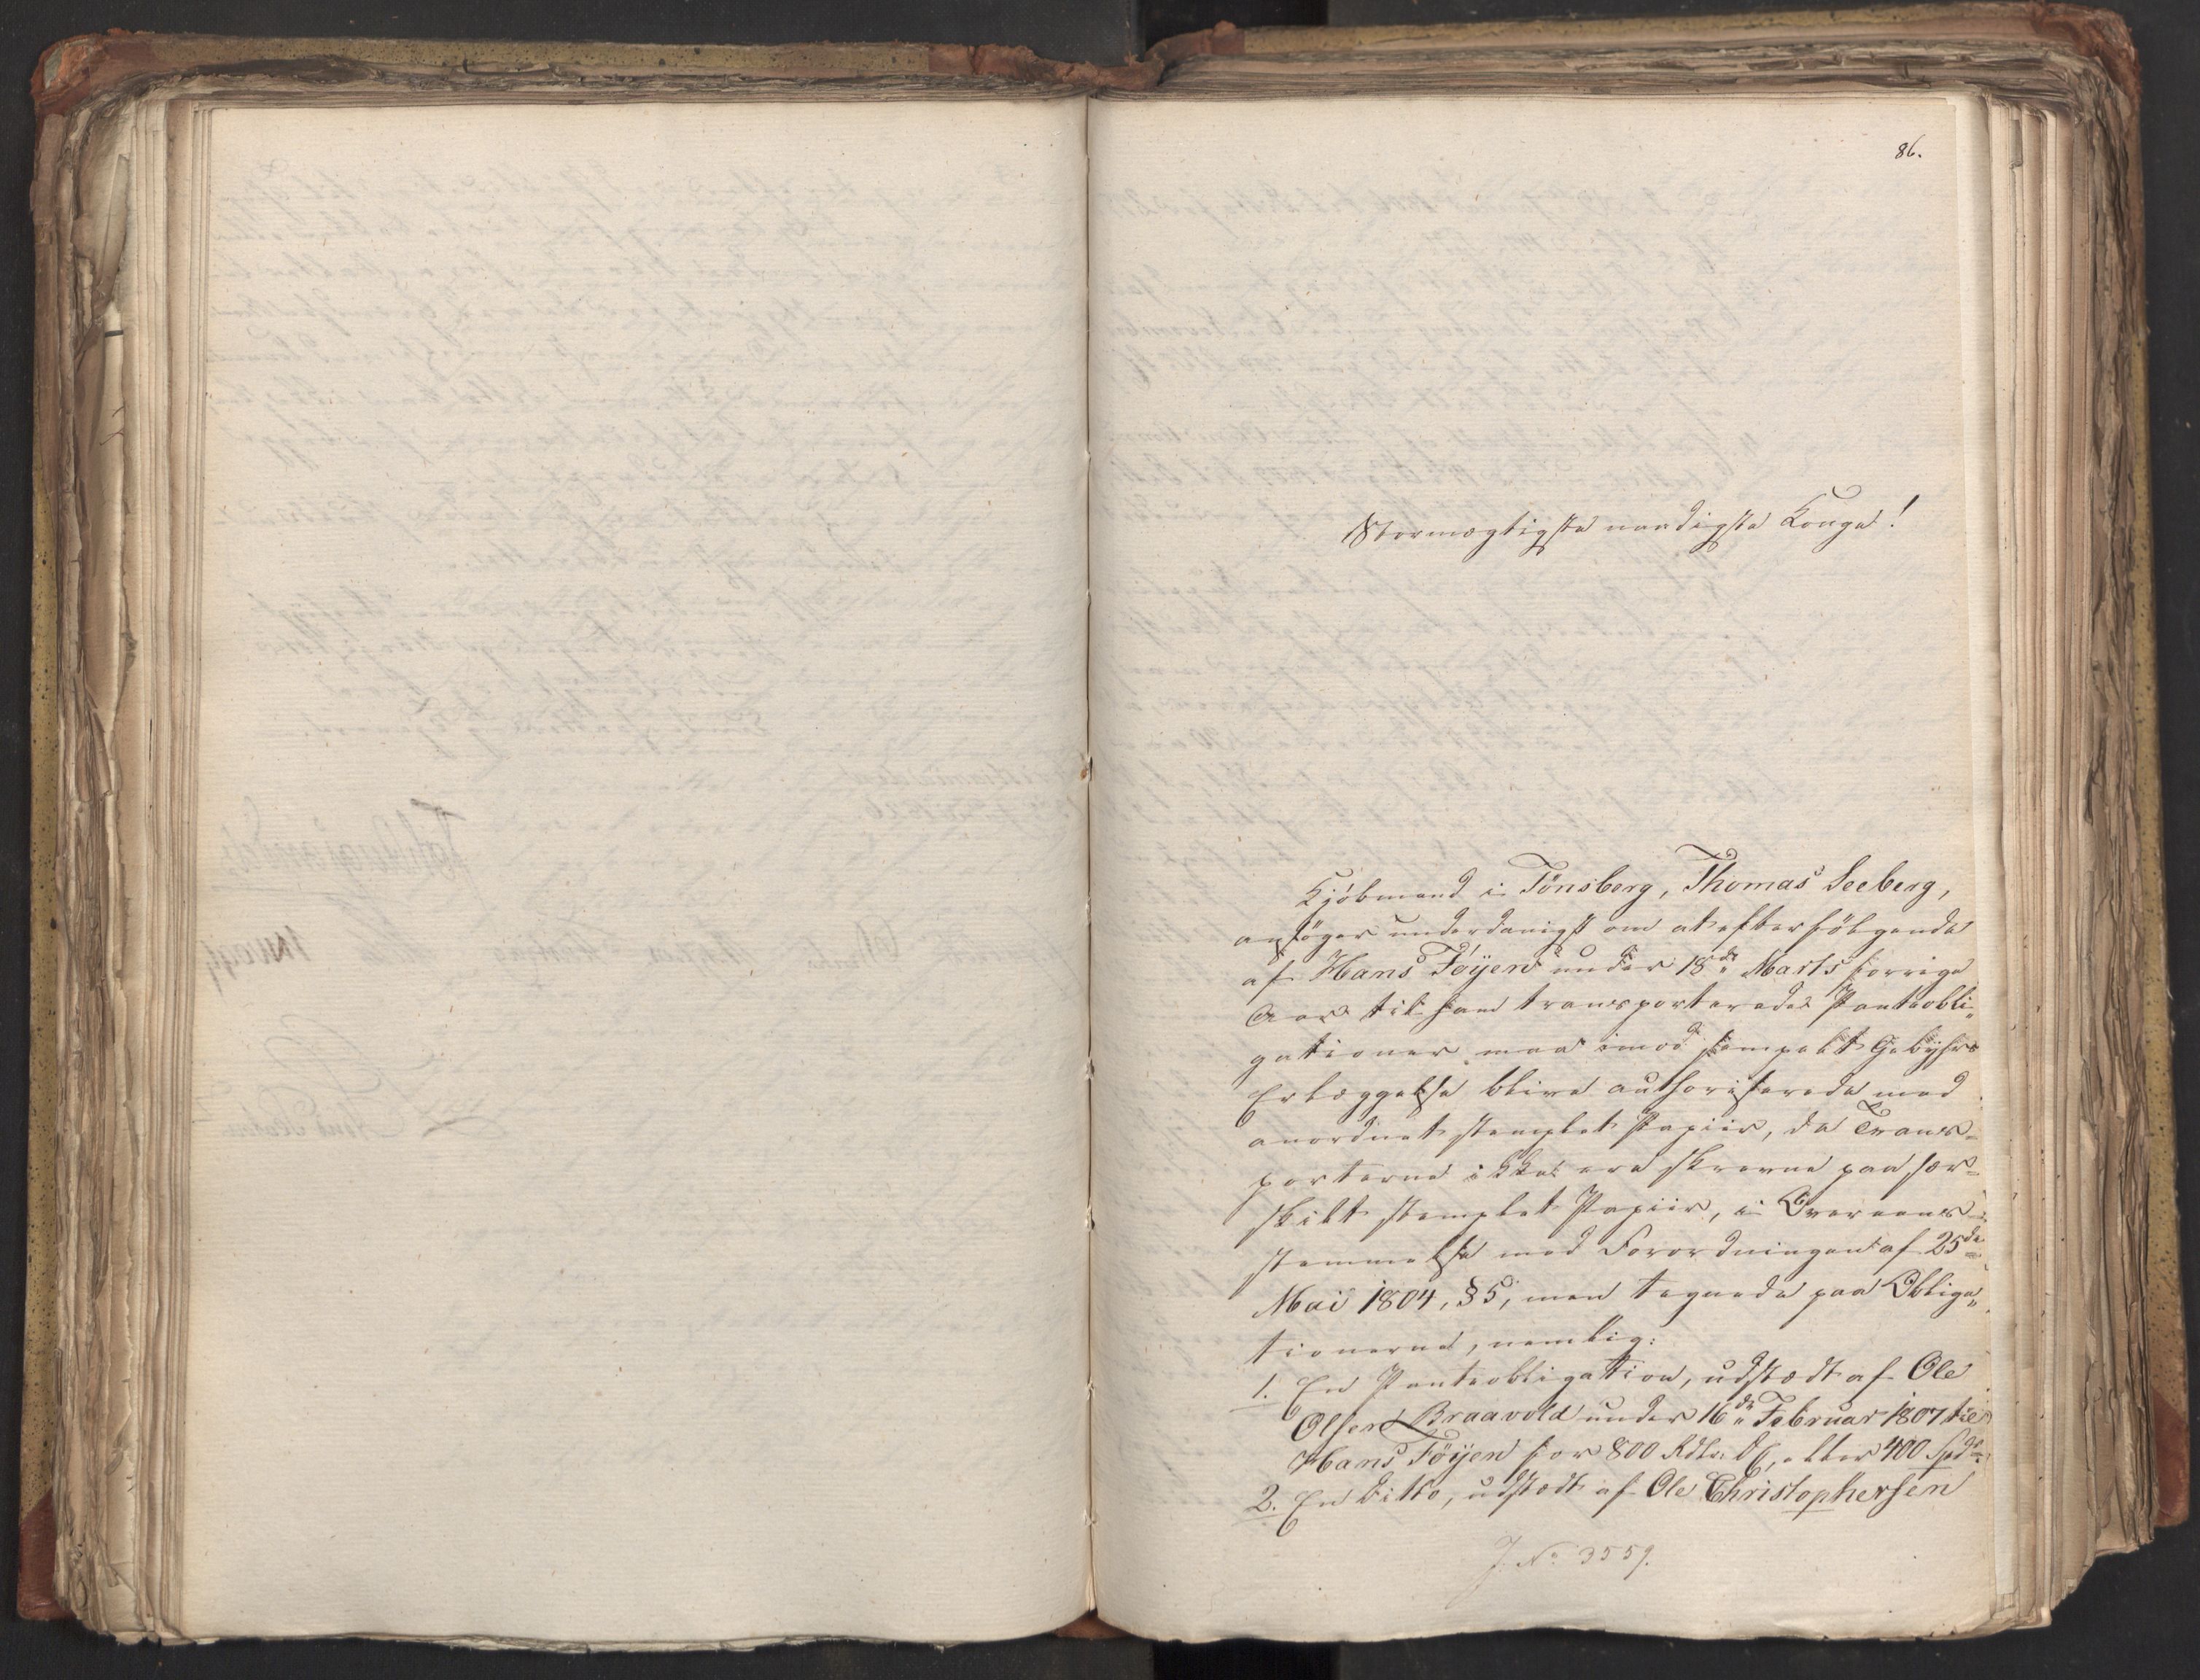 86.
Stormægtigste naadigste Konge!
Kjöbmand i Tönsberg, Thomas Seeberg,
ansöger underdanigst om at efterfölgende
af Hans Föyen under 18de Marts forrige
Aar til ham transporterede Panteobli„
gationer maa imod simpelt Gebyhrs
Erlæggelse blive authoriserede med
anordnet stemplet Papiir, da Trans-
porterne ikke ere skrevne paa sær-
skilt stemplet Papiir, i Overeens-
stemmelse med Forordningen af 25de
Mai 1804, §5, men tegnede paa Obliga„
tionerne, nemlig:
1. En Panteobligation, udstædt af Ole
Olsen Braavold under 16de Februar 1807 til
Hans Föyen for 800 Rdlr. DC, eller 400 Spd
2. En Ditto, udstædt af Ole Christophersen
J. No 3559.